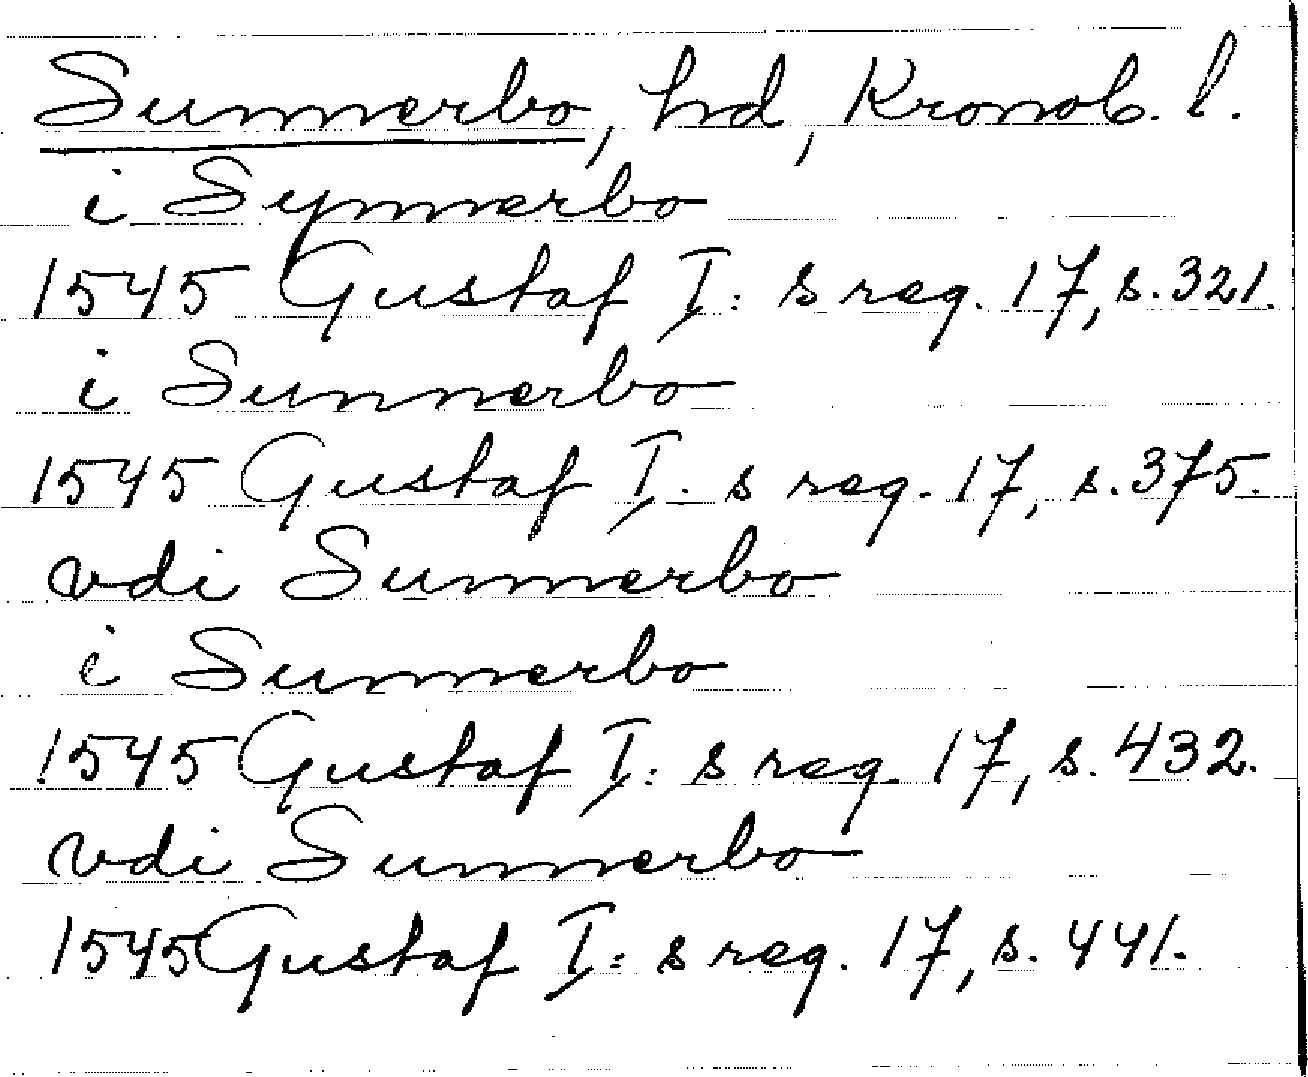 Sunnerbo, hd, Kronob. l.
i Synnerbo
1545 Gustaf I: s reg. 17, s. 321.
i Sunnerbo
1545 Gustaf I. s reg. 17, s. 375.
vdi Sunnerbo
i Sunnerbo
1545 Gustaf I: s reg. 17, s. 432.
vdi Sunnerbo
1545 Gustaf I: s reg. 17, s. 441.